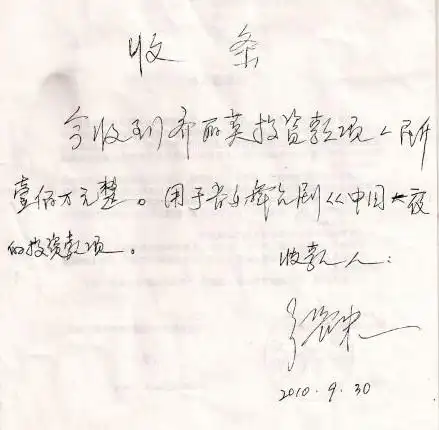 收 条
今收到齐丽英投资款项人民币
壹佰万元整。用于音乐舞台剧《中国大夜
的投资款项。
收款人：
2010.9.30